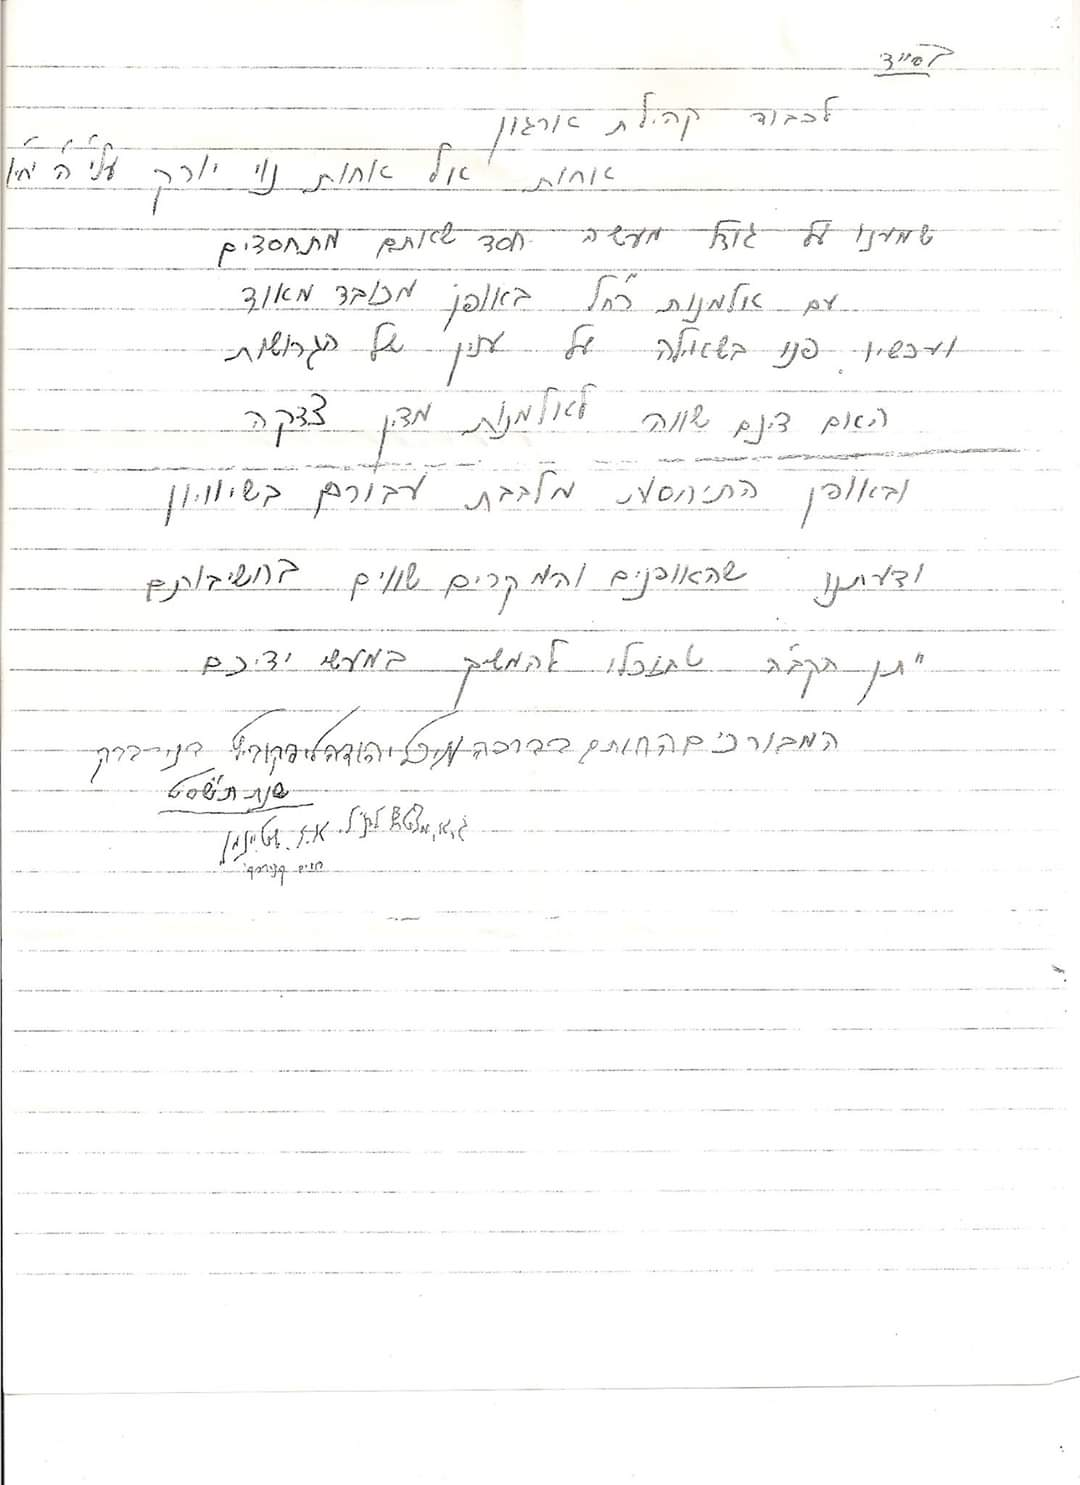 בסייד
לכבוד קהילת ארגון
אחות אל אחות נוי יורק
שמענו על גודל מעשה חסד שאתם מתחסדים
עם אלמנות רח"ל באופן מכובד מאוד
ועכשיו פנו בשאילה על ענין של הגרושות
האם דינם שווה לאלמנות מדין צדקה
ובאופן התיחסות מלבבת עבורם בשיוויון
ודעתנו שהאופנים והמקרים שווים בחשיבותם
יתן הקב"ה שתוכלו להמשיך במעשי ידיכם
המבורכים החותם בברכה מיכל יהודה ליפקוביץ בני-ברק
שנת תשס"ט
א.ל. שטיינמן
חיים קניבסקי